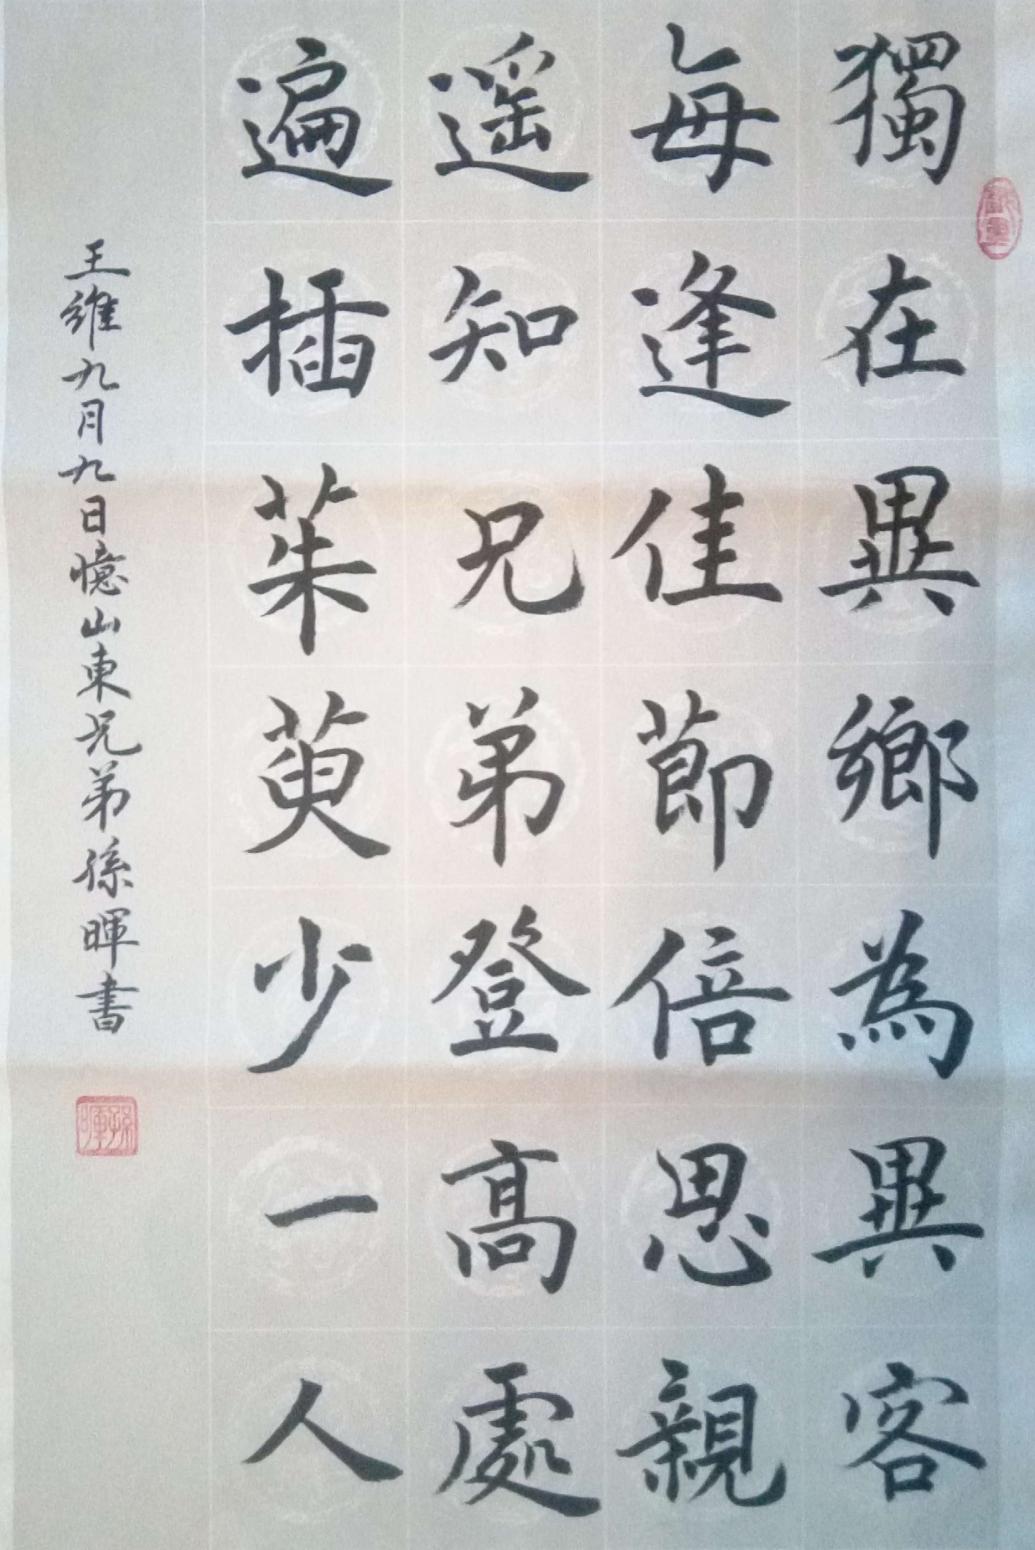 獨在異鄉為異客
每逢佳節倍思親
遥知兄弟登高處
遍插茱萸少一人
王維九月九日憶山東兄弟孫暉書
孫暉